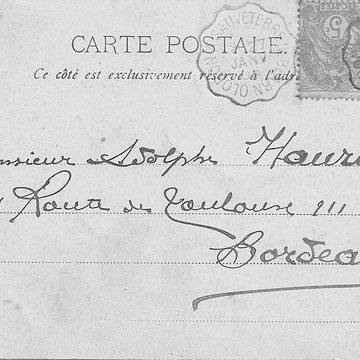 CARTE POSTALE.
Ce côté est exclusivement réservé à l'adre
SAUVETERRE-BÉARN OLORON
JANV
5
onsieur Adolphe Hauri
Route de Toulouse 111
Bordea